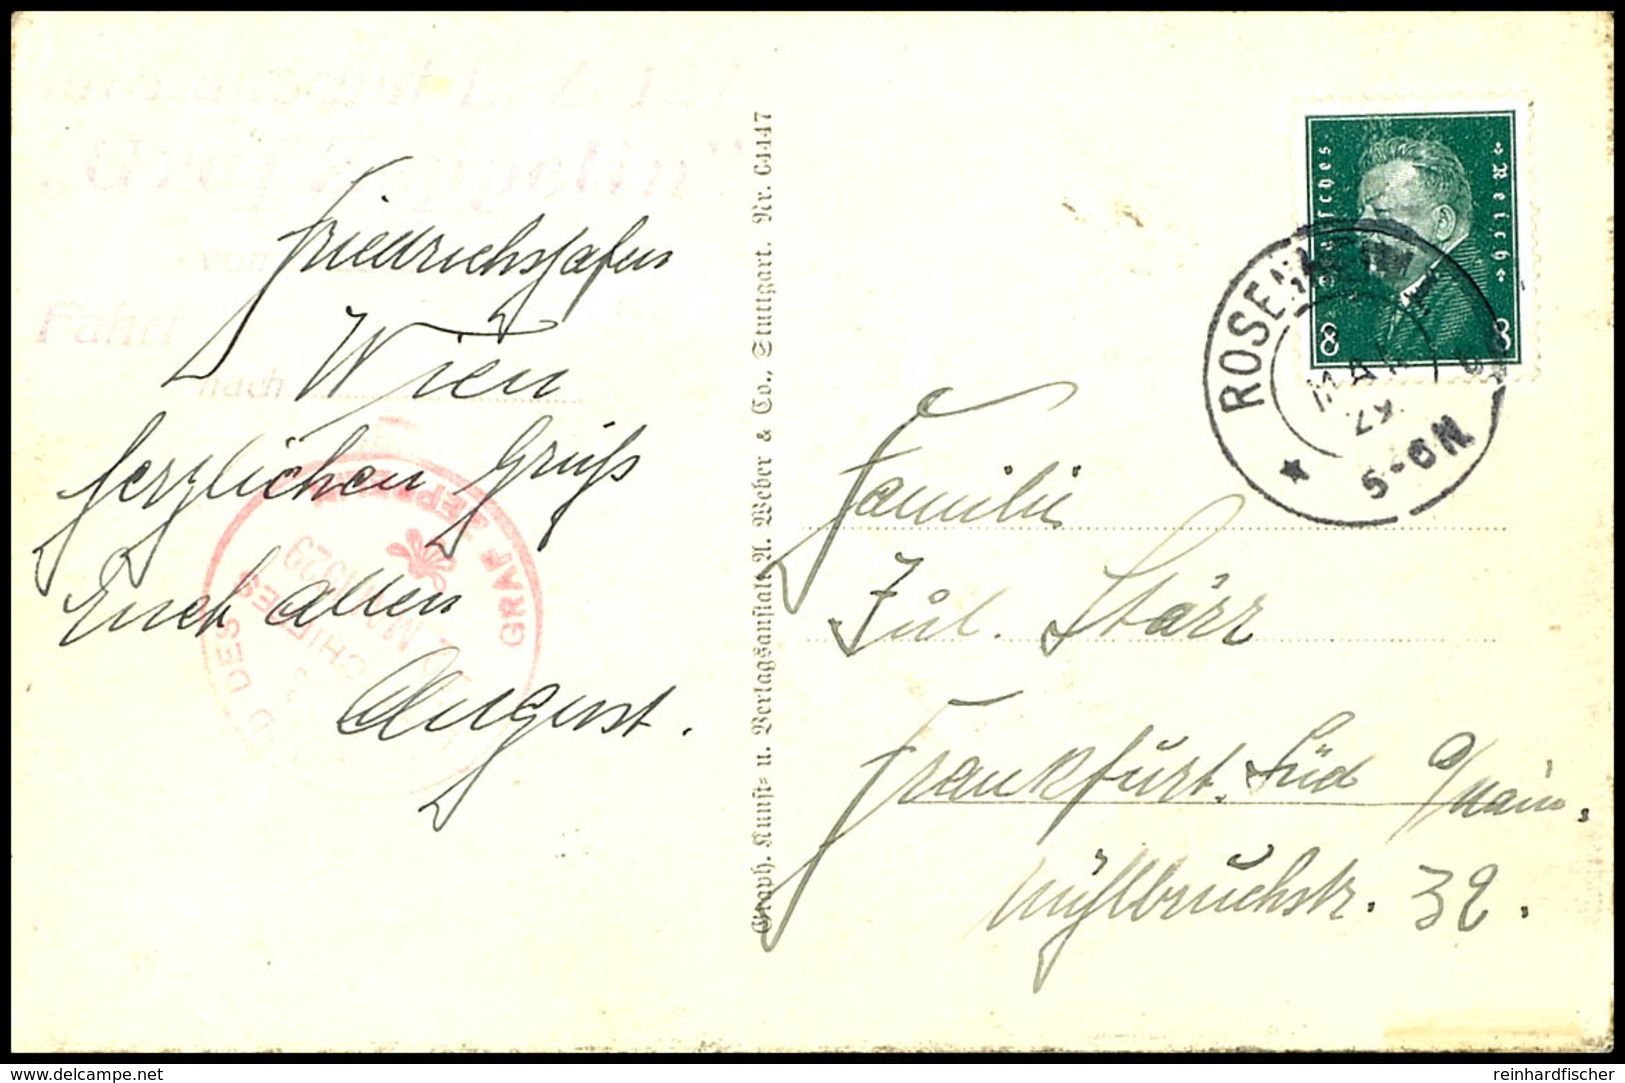 L. Z. 127
„Graf Zeppelin"
von
Fahrt
nach
Friedrichshafen
Wien
herzlichen Gruß
Euch allen
August.
DES
SCHIFFES
GRAF ZEPPELIN
1929
Graph. Kunst- u. Verlagsanstalt A. Weber & Co., Stuttgart. Nr. C4447
Deutsches Reich
8 8
ROSENHEIM
MAI
29
5-6N
Familie
Jul. Stärr
Frankfurt Süd a/Main.
Mühlbruchstr. 32.
delcampe.net
reinhardfischer